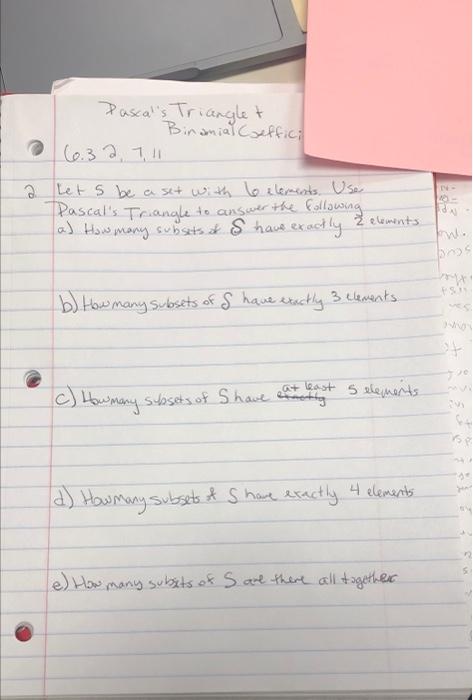 Pascal's Triangle +
Binomial Coeffici
6.3 2, 7, 11
2 Let S be a set with 6 elements. Use
Pascal's Triangle to answer the following
a) How many subsets of S have exactly 2 elements
b) How many subsets of S have exactly 3 elements
c) How many subsets of S have at least exactly 5 elements
d) How many subsets of S have exactly 4 elements
e) How many subsets of S are there all together